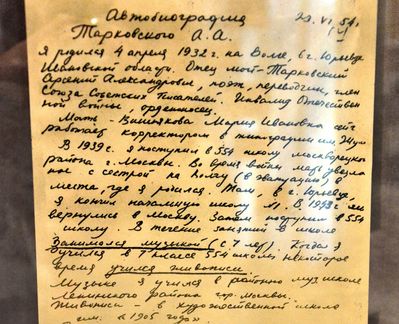 Автобиография 29.VI.54.
Тарковского А.А.
Я родился 4 апреля 1932 г. на Волге, в г. Юрьевце
Ивановской области. Отец мой – Тарковский
Арсений Александрович, поэт, переводчик, член
Союза Советских Писателей. Инвалид Отечествен
ной войны, орденоносец.
Мать – Вишнякова Мария Ивановна сейчас
работает корректором в типографии им. Жданова
В 1939 г. я поступил в 554 школу москворецкого
района г. Москвы. Во время войны мать увезла
с сестрой на Волгу (в эвакуацию) в
места, где я родился. Там, в г. Юрьевце
я кончил начальную школу В 1943 г мы
вернулись в Москву. Затем поступил в 554
школу. В течение занятий в школе
занимался музыкой (с 7 лет). Когда я
учился в 7 классе 554 школы некоторое
время учился живописи.
Музыке я учился в районной муз школе
Ленинского района гор. Москвы.
Живописи – в художественной школе
им. "1905 года"